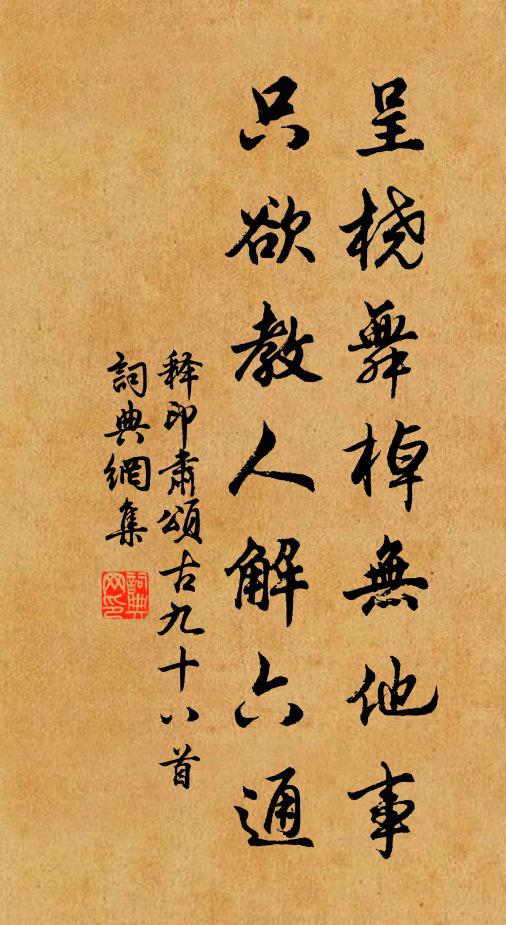 呈桡舞棹無他事
只欲教人解六通
释印肅頌古九十八首
詞典網集
詞典网印